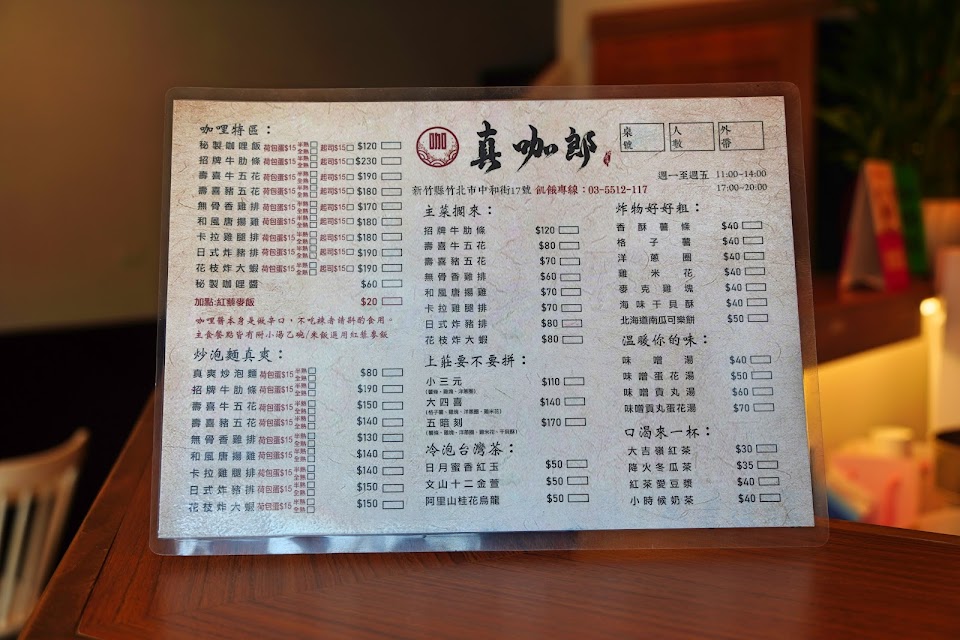 咖哩特區：
秘製咖哩飯 荷包蛋$15 半熟 全熟 起司$15 $120
招牌牛肋條 荷包蛋$15 半熟 全熟 起司$15 $230
壽喜牛五花 荷包蛋$15 半熟 全熟 起司$15 $190
壽喜豬五花 荷包蛋$15 半熟 全熟 起司$15 $180
無骨香雞排 荷包蛋$15 半熟 全熟 起司$15 $170
和風唐揚雞 荷包蛋$15 半熟 全熟 起司$15 $180
卡拉雞腿排 荷包蛋$15 半熟 全熟 起司$15 $180
日式炸豬排 荷包蛋$15 半熟 全熟 起司$15 $190
花枝炸大蝦 荷包蛋$15 半熟 全熟 起司$15 $190
秘製咖哩醬 $60
加點:紅藜麥飯 $20
咖哩醬本身是微辛口，不吃辣者請斟酌食用。
主食餐點皆有附小湯乙碗/米飯選用紅藜麥飯
炒泡麵真爽：
真爽炒泡麵 荷包蛋$15 半熟 全熟 $80
招牌牛肋條 荷包蛋$15 半熟 全熟 $190
壽喜牛五花 荷包蛋$15 半熟 全熟 $150
壽喜豬五花 荷包蛋$15 半熟 全熟 $140
無骨香雞排 荷包蛋$15 半熟 全熟 $130
和風唐揚雞 荷包蛋$15 半熟 全熟 $140
卡拉雞腿排 荷包蛋$15 半熟 全熟 $140
日式炸豬排 荷包蛋$15 半熟 全熟 $150
花枝炸大蝦 荷包蛋$15 半熟 全熟 $150
咖 真咖郎
桌號 人數 外帶
週一至週五 11:00~14:00
17:00~20:00
新竹縣竹北市中和街17號 飢餓專線：03-5512-117
主菜擱來：
招牌牛肋條 $120
壽喜牛五花 $80
壽喜豬五花 $70
無骨香雞排 $60
和風唐揚雞 $70
卡拉雞腿排 $70
日式炸豬排 $80
花枝炸大蝦 $80
上莊要不要拼：
小三元 $110
(薯條、雞塊、洋蔥圈)
大四喜 $140
(格子薯、雞塊、洋蔥圈、雞米花)
五暗刻 $170
(薯條、雞塊、洋蔥圈、雞米花、干貝酥)
冷泡台灣茶：
日月蜜香紅玉 $50
文山十二金萱 $50
阿里山桂花烏龍 $50
炸物好好粗：
香酥薯條 $40
格子薯 $40
洋蔥圈 $40
雞米花 $40
麥克雞塊 $40
海味干貝酥 $40
北海道南瓜可樂餅 $50
溫暖你的味：
味噌湯 $40
味噌蛋花湯 $50
味噌貢丸湯 $60
味噌貢丸蛋花湯 $70
口渴來一杯：
大吉嶺紅茶 $30
降火冬瓜茶 $35
紅茶愛豆漿 $40
小時候奶茶 $40